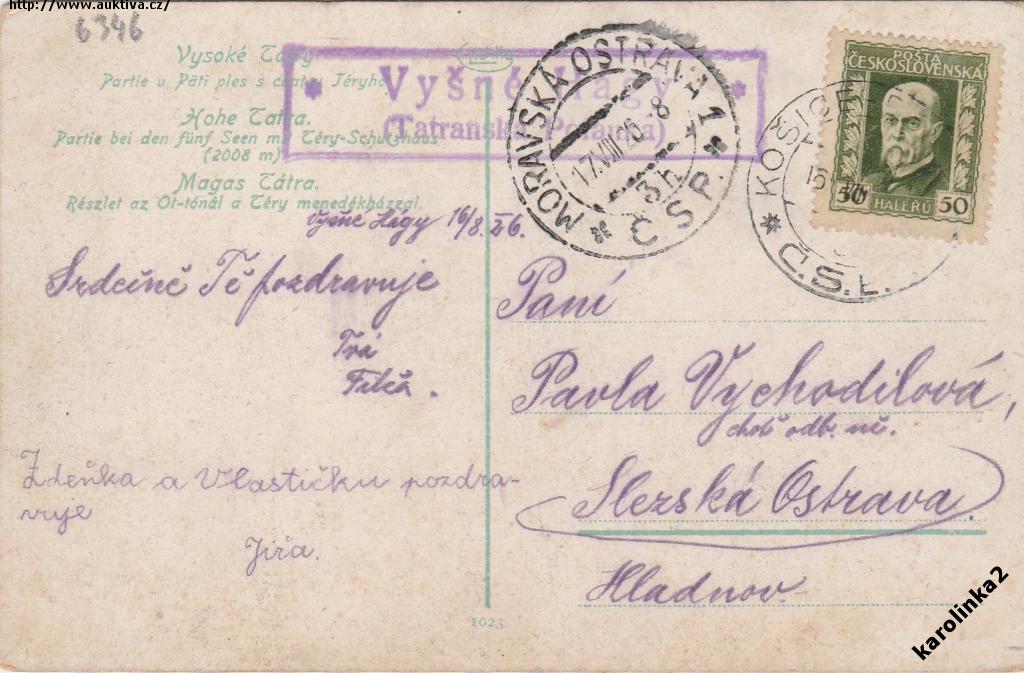 http://www.auktiva.cz/
6346
Vysoké Tatry
Partie u Päti ples s chatou Téryho
Hohe Tatra.
Partie bei den fünf Seen mit Téry-Schutzhaus
(2008 m)
Magas Tátra.
Részlet az Öt-tónál a Téry menedékházzal.
* Vyšné Hágy *
(Tatranská Polianka)
MORAVSKÁ OSTRAVA 1
17.VIII 26.-8
3h
Č.S.P.
POŠTA
ČESKOSLOVENSKÁ
50 HALÉŘŮ 50
* KOŠICE
Č.S.
Vyšné Hágy 16/8. 26.
Srdečně Tě pozdravuje
Tvá
Zdeňka a Vlastičku pozdra-
vuje
Jiřa.
Paní
Pavla Vychodilová,
choť odb. uč.
Slezská Ostrava.
Hladnov
1023
karolinka2